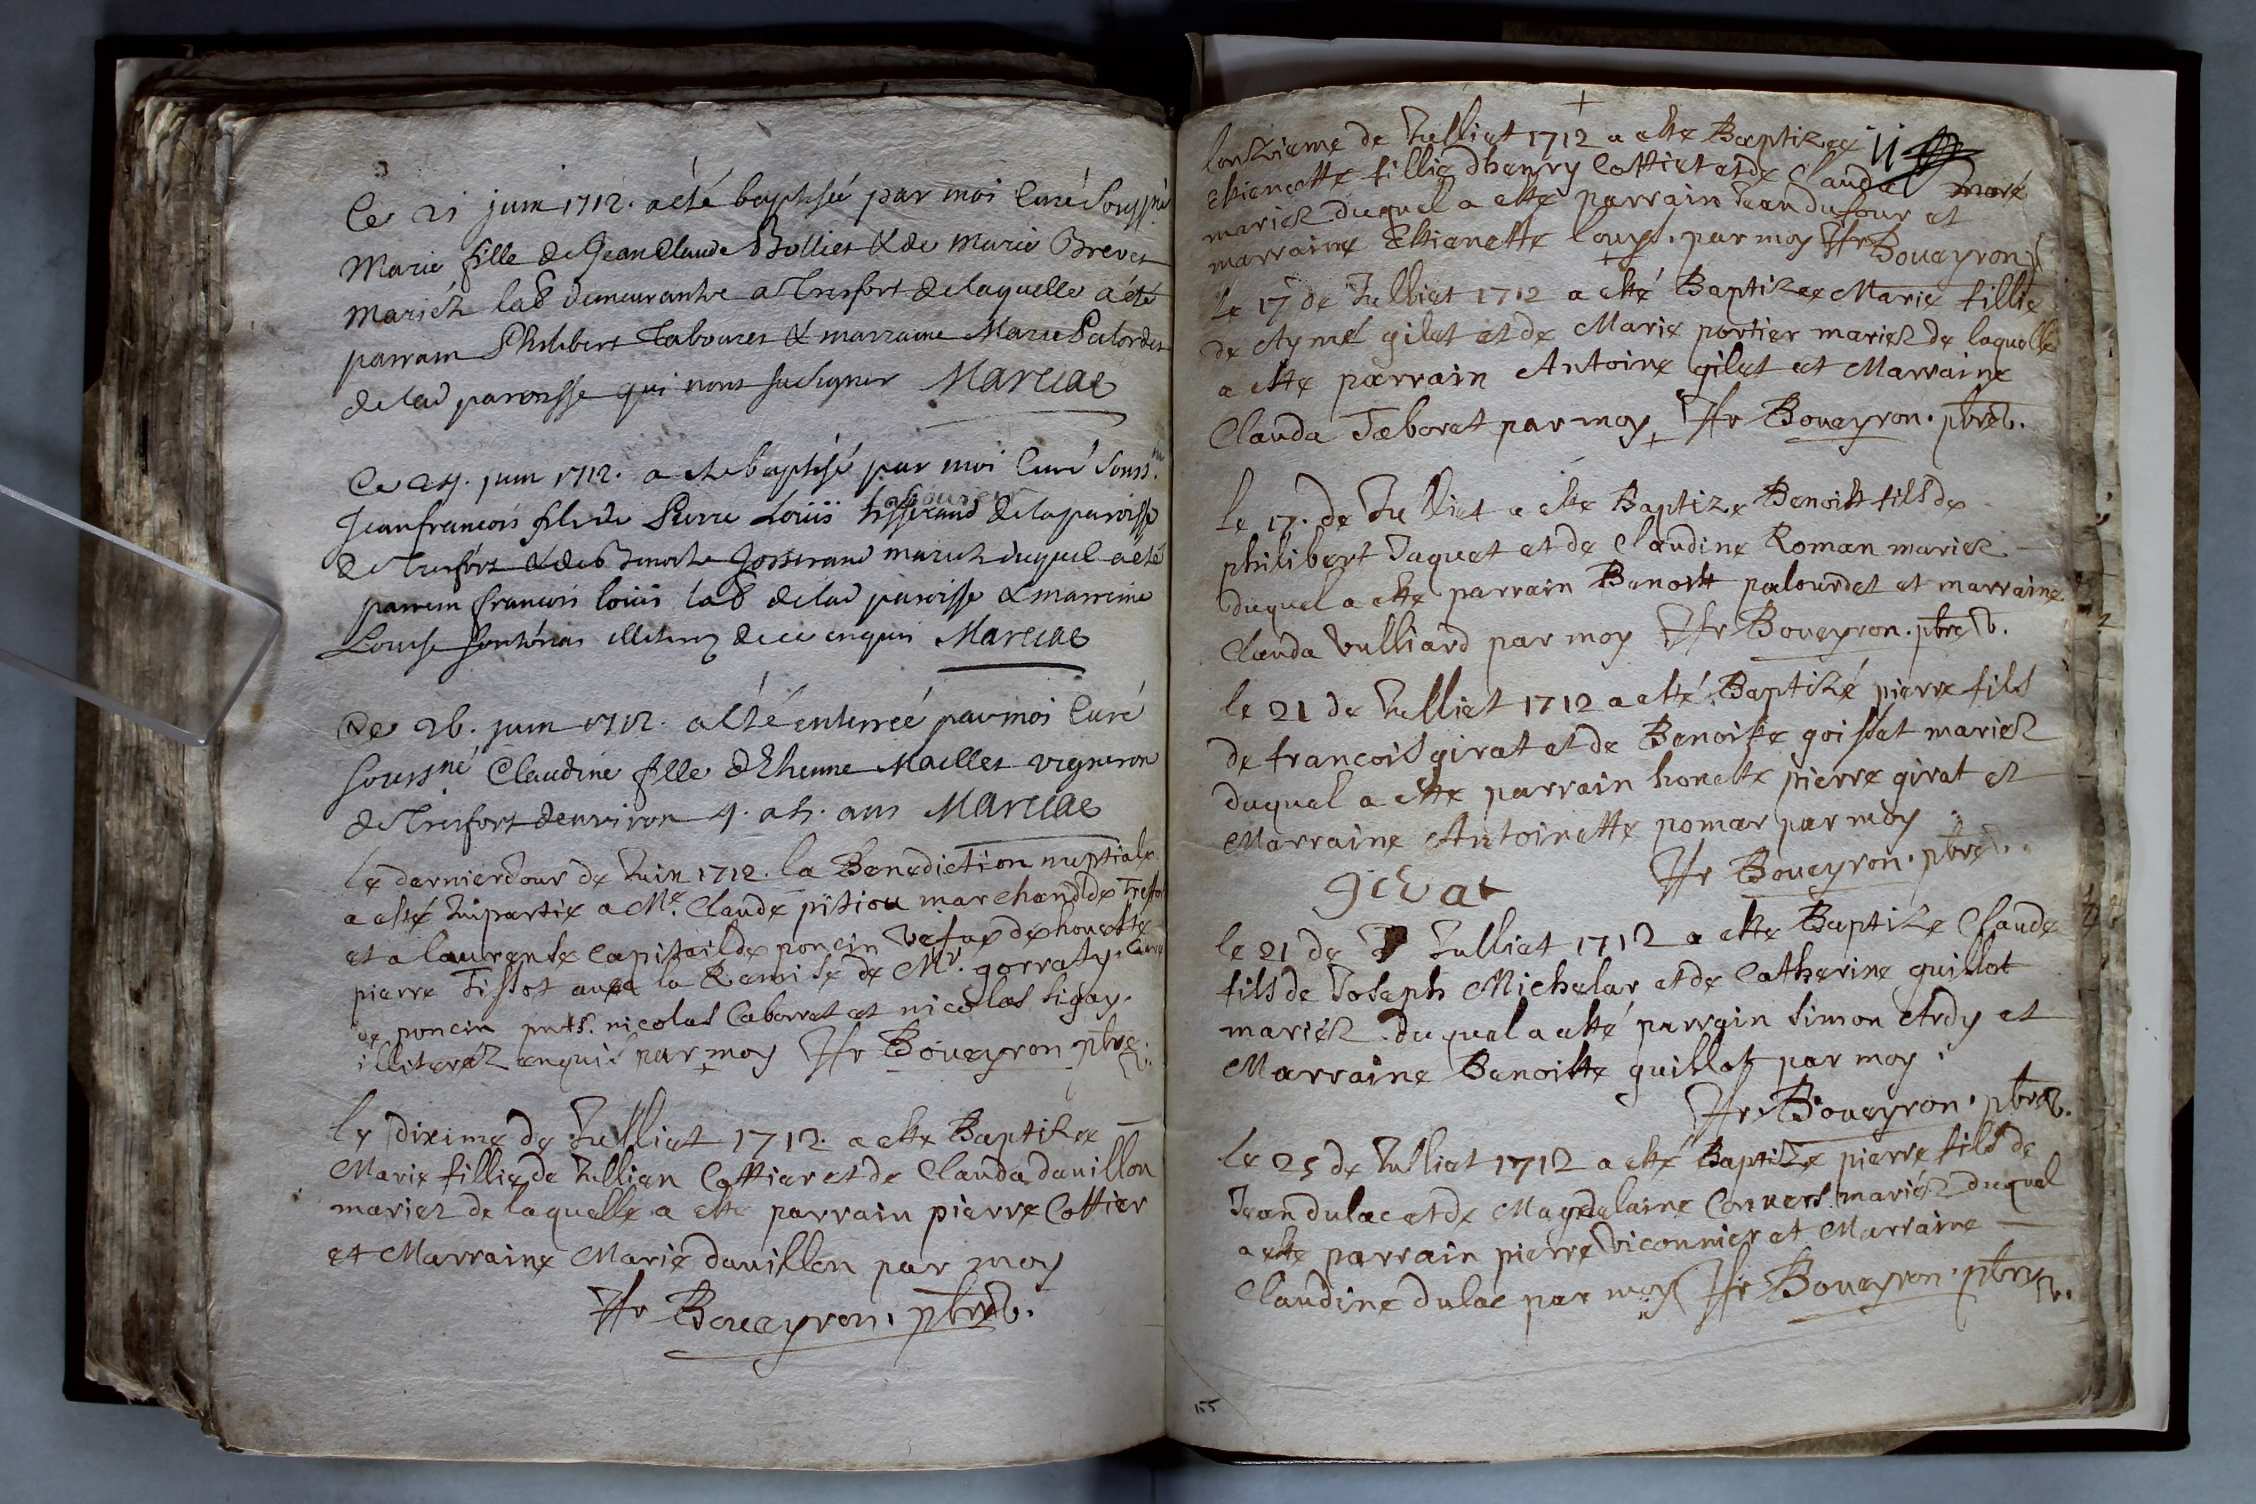 Ce 21 juin 1712. a été baptisée par moi Curé Soussné
Marie fille de Jean Claude Bollies & de Marie Brevet
Mariéz lab demeurants a Tresfort de laquelle a été
parrain Philibert Taboures & marraine Marie Palordes
de lad paroisse qui n'ont su signer Marciac
Ce 24. juin 1712. a ete baptisé par moi Curé Souss.né
Jean francois fils de Pierre Loüis tisserand laboureur de la paroisse
de Tresfort & de Benoite Josserand mariéz duquel a été
parrein francois loüis lab de lad paroisse & marreine
Louise illiterez de ce enquis Marciac
Ce 26. juin 1712. a été enterreé par moi Curé
Soussné Claudine fille d'Etienne Maillet vigneron
de Tresfort d'environ 4. a 5. ans Marciac
Le dernier Jour de Juin 1712. la Benediction nuptiale
a esté Impartie a Me. Claude pitiou marchand de Treffort
et a laurense Capitail de poncin vefue de honeste
pierre Tissot auec la Remise de Mr. gorraty. Curé
de poncin pnts. nicolas Caborret et nicolas sigay.
illiteréz enquis par moy Fr Boueyron ptre
le dixime de Julliet 1712. a este Baptizee
Marie fillie de Jullien Cottier et de Clauda dauillon
mariez de laquelle a este parrain pierre Cottier
et Marraine Marie dauillon par moy
Fr Boueyron. ptre v.
lonzieme de Julliet 1712 a este Baptizee 11
Etienette fillie d'henry Cottiet et de Clauda moré
mariez duquel a este parrain Jean dufour et
marraine Etienette louys. par moy Fr Boueyron
Le 17 de Julliet 1712 a esté Baptizee Marie fillie
de Aymé gilet et de Marie portier mariez de laquelle
a este parrain Antoine gilet et Marraine
Clauda Taboret par moy Fr Boueyron. ptre v.
le 17. de Julliet a este Baptize Benoist fils de
philibert Jaquet et de Claudine Roman mariez
duquel a este parrain Benoist palourdet et marraine
Clauda vulliard par moy Fr Boueyron. ptre v.
le 21 de Julliet 1712 a esté Baptizé pierre fils
de francois girat et de Benoiste goisset mariez
duquel a este parrain honeste pierre girat et
Marraine Antoinette pomar par moy
Fr Boueyron. ptre v.
girat
le 21 de Julliet 1712 a este Baptize Claude
fils de Joseph Michelar et de Catherine guillot
mariéz duquel a esté parrain Simon Ardy et
Marraine Benoiste guillot par moy
Fr Boueyron. ptre v.
le 25 de Julliet 1712 a esté Baptize pierre fils de
Jean dulac et de Magdelaine Convers mariéz duquel
a este parrain pierre viconnier et Marraine
Claudine dulac par moy Fr Boueyron. ptre v.
155